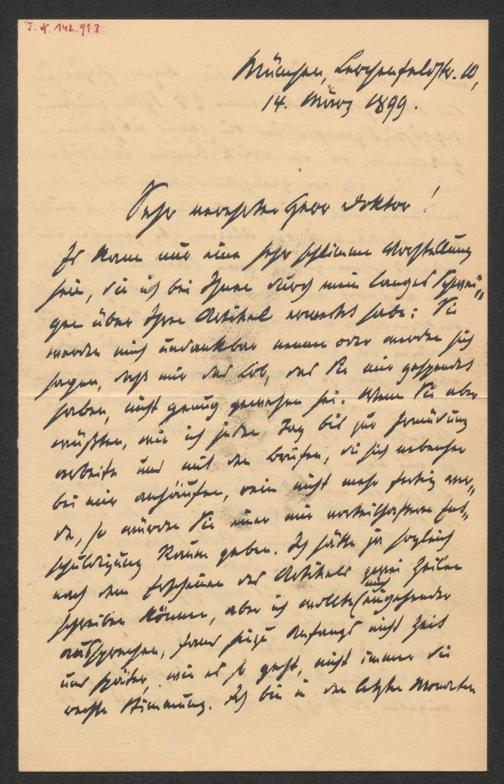 I. N. 142.993
München, Lerchenfeldstr. 10,
14. März 1899.
Sehr verehrter Herr Doktor!
Es kann nur eine sehr schlimme Vorstellung
sein, die ich bei Ihnen durch mein langes Schwei-
gen über Ihren Artikel erweckt habe: Sie
werden mich undankbar nennen oder werden sich
sagen, daß mir das Lob, das Sie mir gespendet
haben, nicht genug gewesen sei. Wenn Sie aber
wüßten, wie ich jeden Tag bis zur Ermüdung
arbeite und mit den Briefen, die sich nebenher
bei mir anhäufen, rein nicht mehr fertig wer-
de, so würden Sie einer mir vorteilhafteren Ent-
schuldigung Raum geben. Ich hätte ja sogleich
nach dem Erscheinen des Artikels zwei Zeilen
schreiben können, aber ich wollte mich eingehender
aussprechen, fand hiezu anfangs nicht Zeit
und später, wie es so geht, nicht immer die
rechte Stimmung. Ich bin in den letzten Monaten